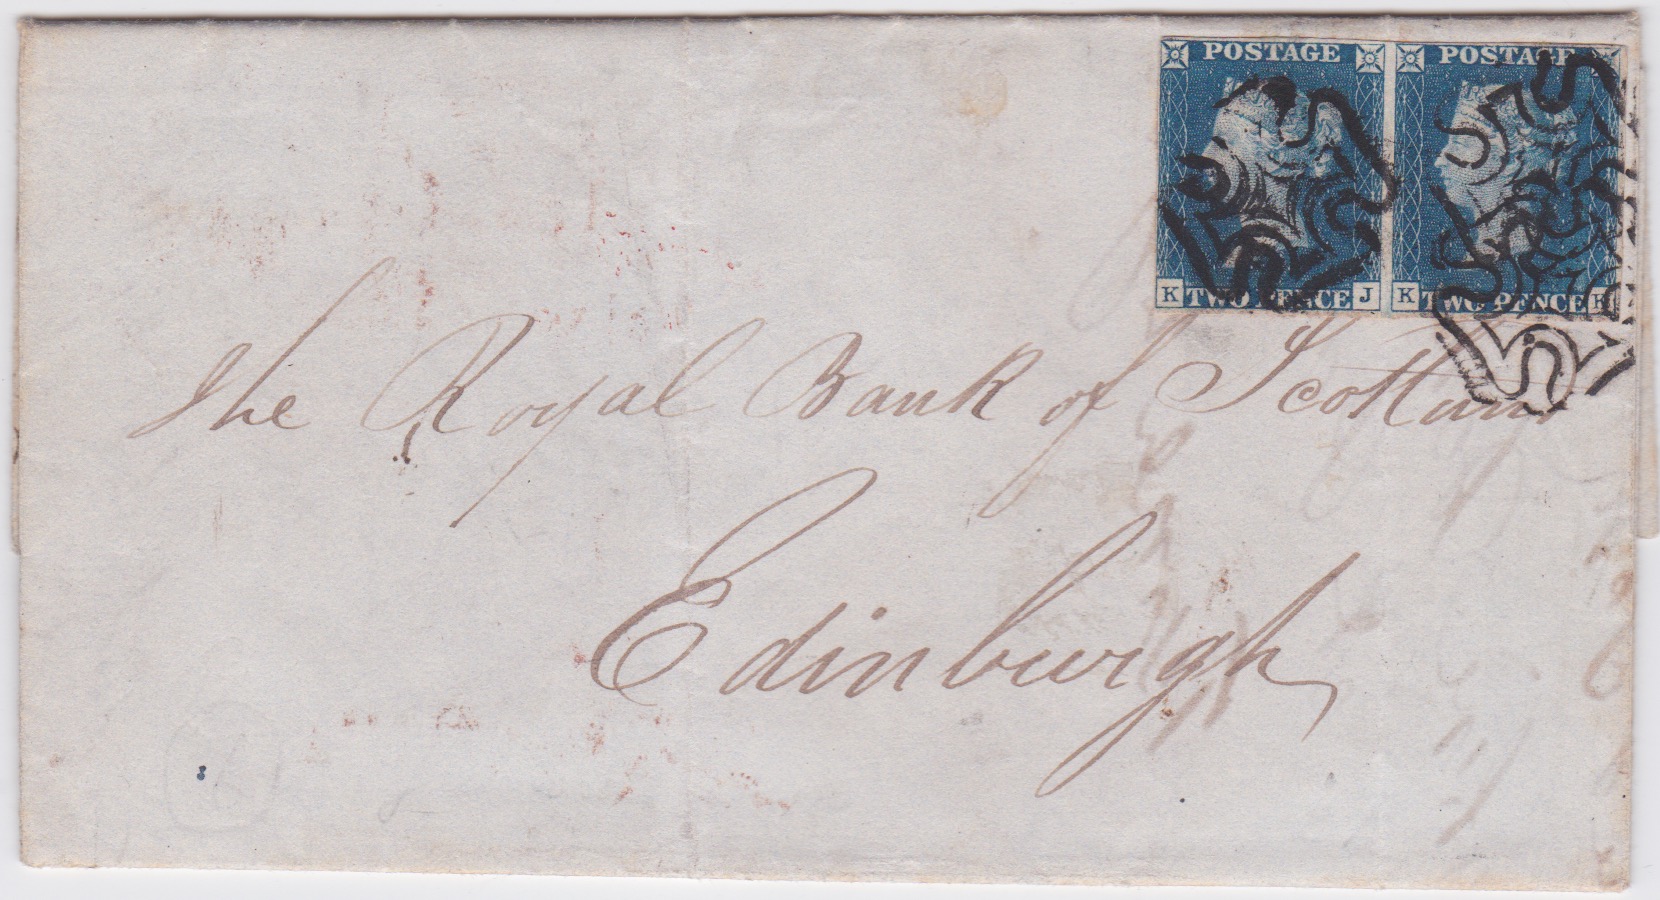 POSTAGE POSTAGE
K TWO PENCE J K TWO PENCE K
The Royal Bank of Scotland
Edinburgh